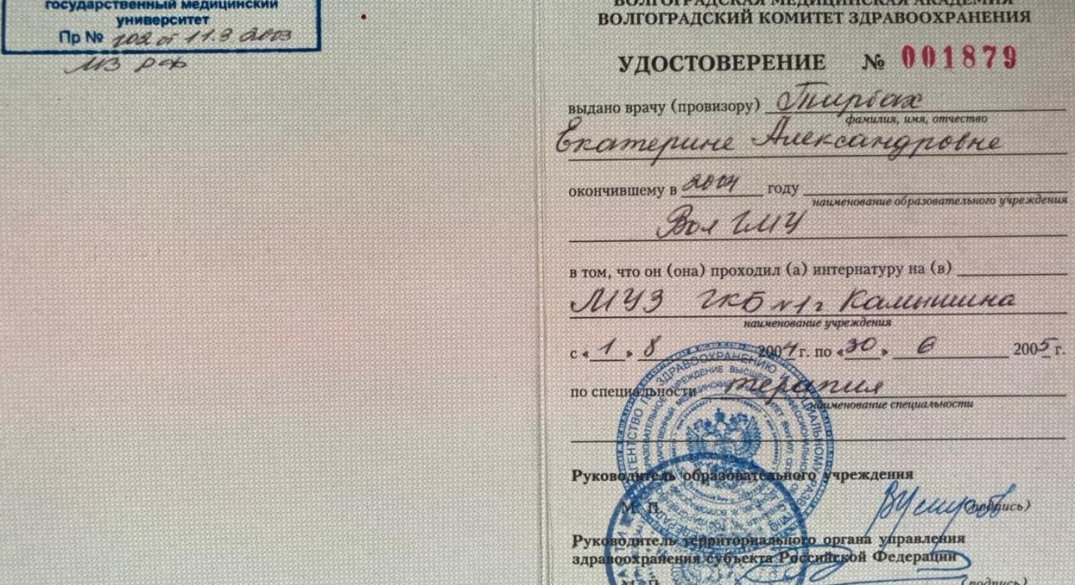 государственный медицинский
университет
Пр № 102 от 11.3 2003
МЗ РФ
ВОЛГОГРАДСКАЯ МЕДИЦИНСКАЯ АКАДЕМИЯ
ВОЛГОГРАДСКИЙ КОМИТЕТ ЗДРАВООХРАНЕНИЯ
УДОСТОВЕРЕНИЕ № 001879
выдано врачу (провизору) Тирбах
фамилия, имя, отчество
Екатерине Александровне
окончившему в 2004 году
наименование образовательного учреждения
ВолГМУ
в том, что он (она) проходил (а) интернатуру на (в)
МУЗ ГКБ №1 г Камышина
наименование учреждения
с « 1 » 8 2004 г. по « 30 » 6 2005 г.
по специальности терапия
наименование специальности
Руководитель образовательного учреждения
М. П. (подпись)
Руководитель территориального органа управления
здравоохранения субъекта Российской Федерации
М. П. (подпись)